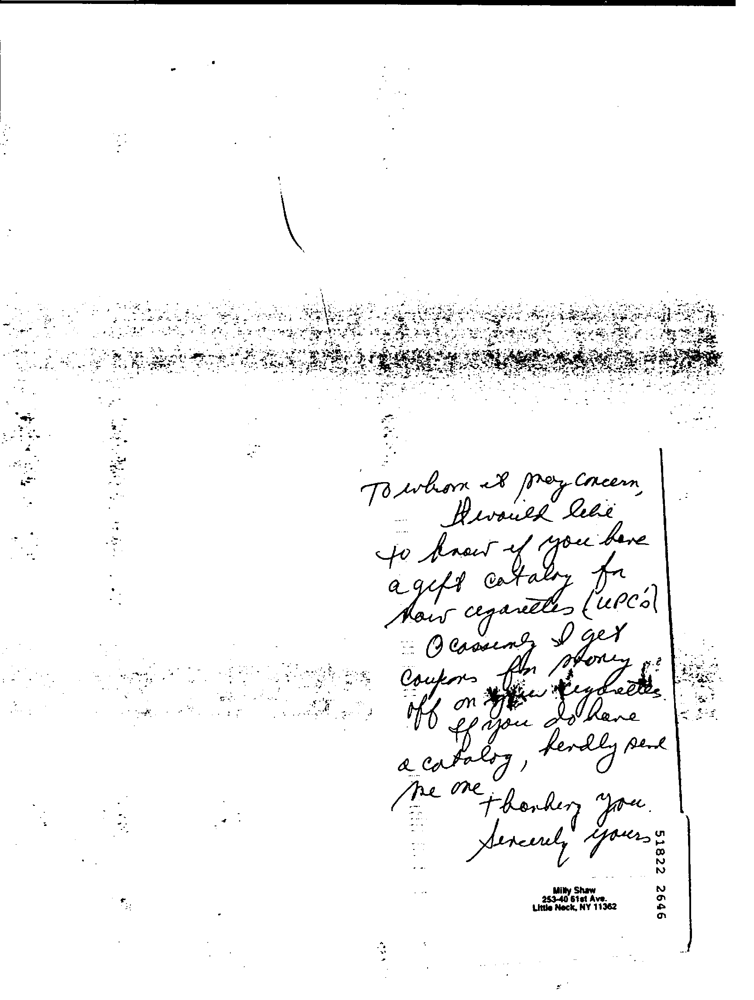 To whom it may concern,
I would like
to know if you have
a gift catalog for
Now cigarettes (UPC's)
Ocassionly I get
coupons for money
off on your cigarettes
If you do have
a catalog, kindly send
me one
thanking you.
Sincerely yours
Milly Shaw
253-40 51st Ave.
Little Neck, NY 11362
51822 2646